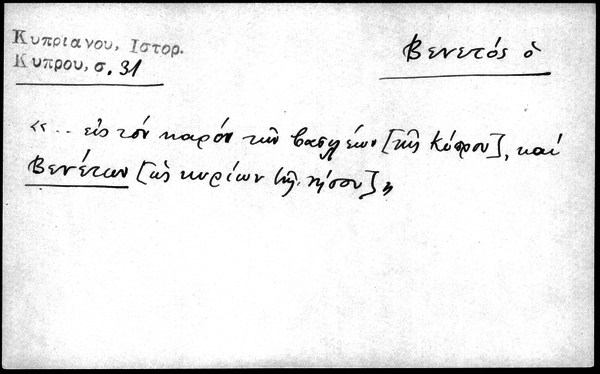 Κυπριανου, Ιστορ.
Κυπρου, σ. 31
Βενετός ὁ
«.. εἰς τόν καρόν τῶν βασιλέων [τῆς Κύπρου], καί
Βενέτων [ὡς κυρίων τῆς νήσου]»